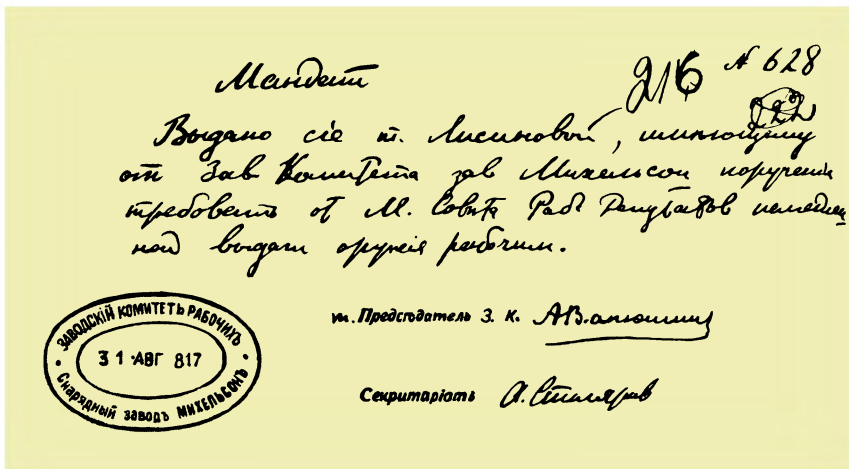 Мандат
216 № 628
122
Выдано сіе т. Лисиновой, имѣющему
от Зав Комитета зав Михельсон порученія
требовать от М. Совѣта Раб. Депутатов немедлен
ной выдачи оружія рабочим.
т. Предсѣдатель З. К.
Секритаріатъ А. Столяров
ЗАВОДСКІЙ КОМИТЕТЪ РАБОЧИХЪ
31 АВГ 817
Снарядный заводъ МИХЕЛЬСОНЪ